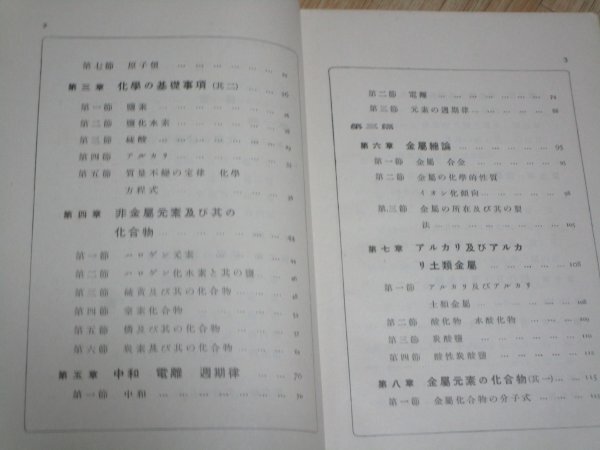 第七節 原子價 … … … … … …
第三章 化學の基礎事項(其二) … … 26
第一節 鹽素 … … … … … … …
第二節 鹽化水素 … … … … … …
第三節 硫酸 … … … … … … …
第四節 アルカリ … … … … … …
第五節 質量不變の定律 化學
方程式 … … … … … …
第四章 非金屬元素及び其の
化合物 … … … … … 44
第一節 ハロゲン元素 … … … …
第二節 ハロゲン化水素と其の鹽 … …
第三節 硫黄及び其の化合物 … … …
第四節 窒素化合物 … … … … …
第五節 燐及び其の化合物 … … …
第六節 炭素及び其の化合物 … … …
第五章 中和 電離 週期律 … … … 70
第一節 中和 … … … … … … 70
3
第二節 電離 … … … … … …
第三節 元素の週期律 … … … … 88
第三編
第六章 金屬總論 … … … … … 95
第一節 金屬 合金 … … … … … 95
第二節 金屬の化學的性質
イオン化傾向 … … … … 98
第三節 金屬の所在及び其の製
法 … … … … … … 105
第七章 アルカリ及びアルカ
リ土類金屬 … … … … 108
第一節 アルカリ及びアルカリ
土類金屬 … … … … … 108
第二節 酸化物 水酸化物 … … … 110
第三節 炭酸鹽 … … … … … 113
第四節 酸性炭酸鹽 … … … … 115
第八章 金屬元素の化合物(其一) … 115
第一節 金屬化合物の分子式 … …